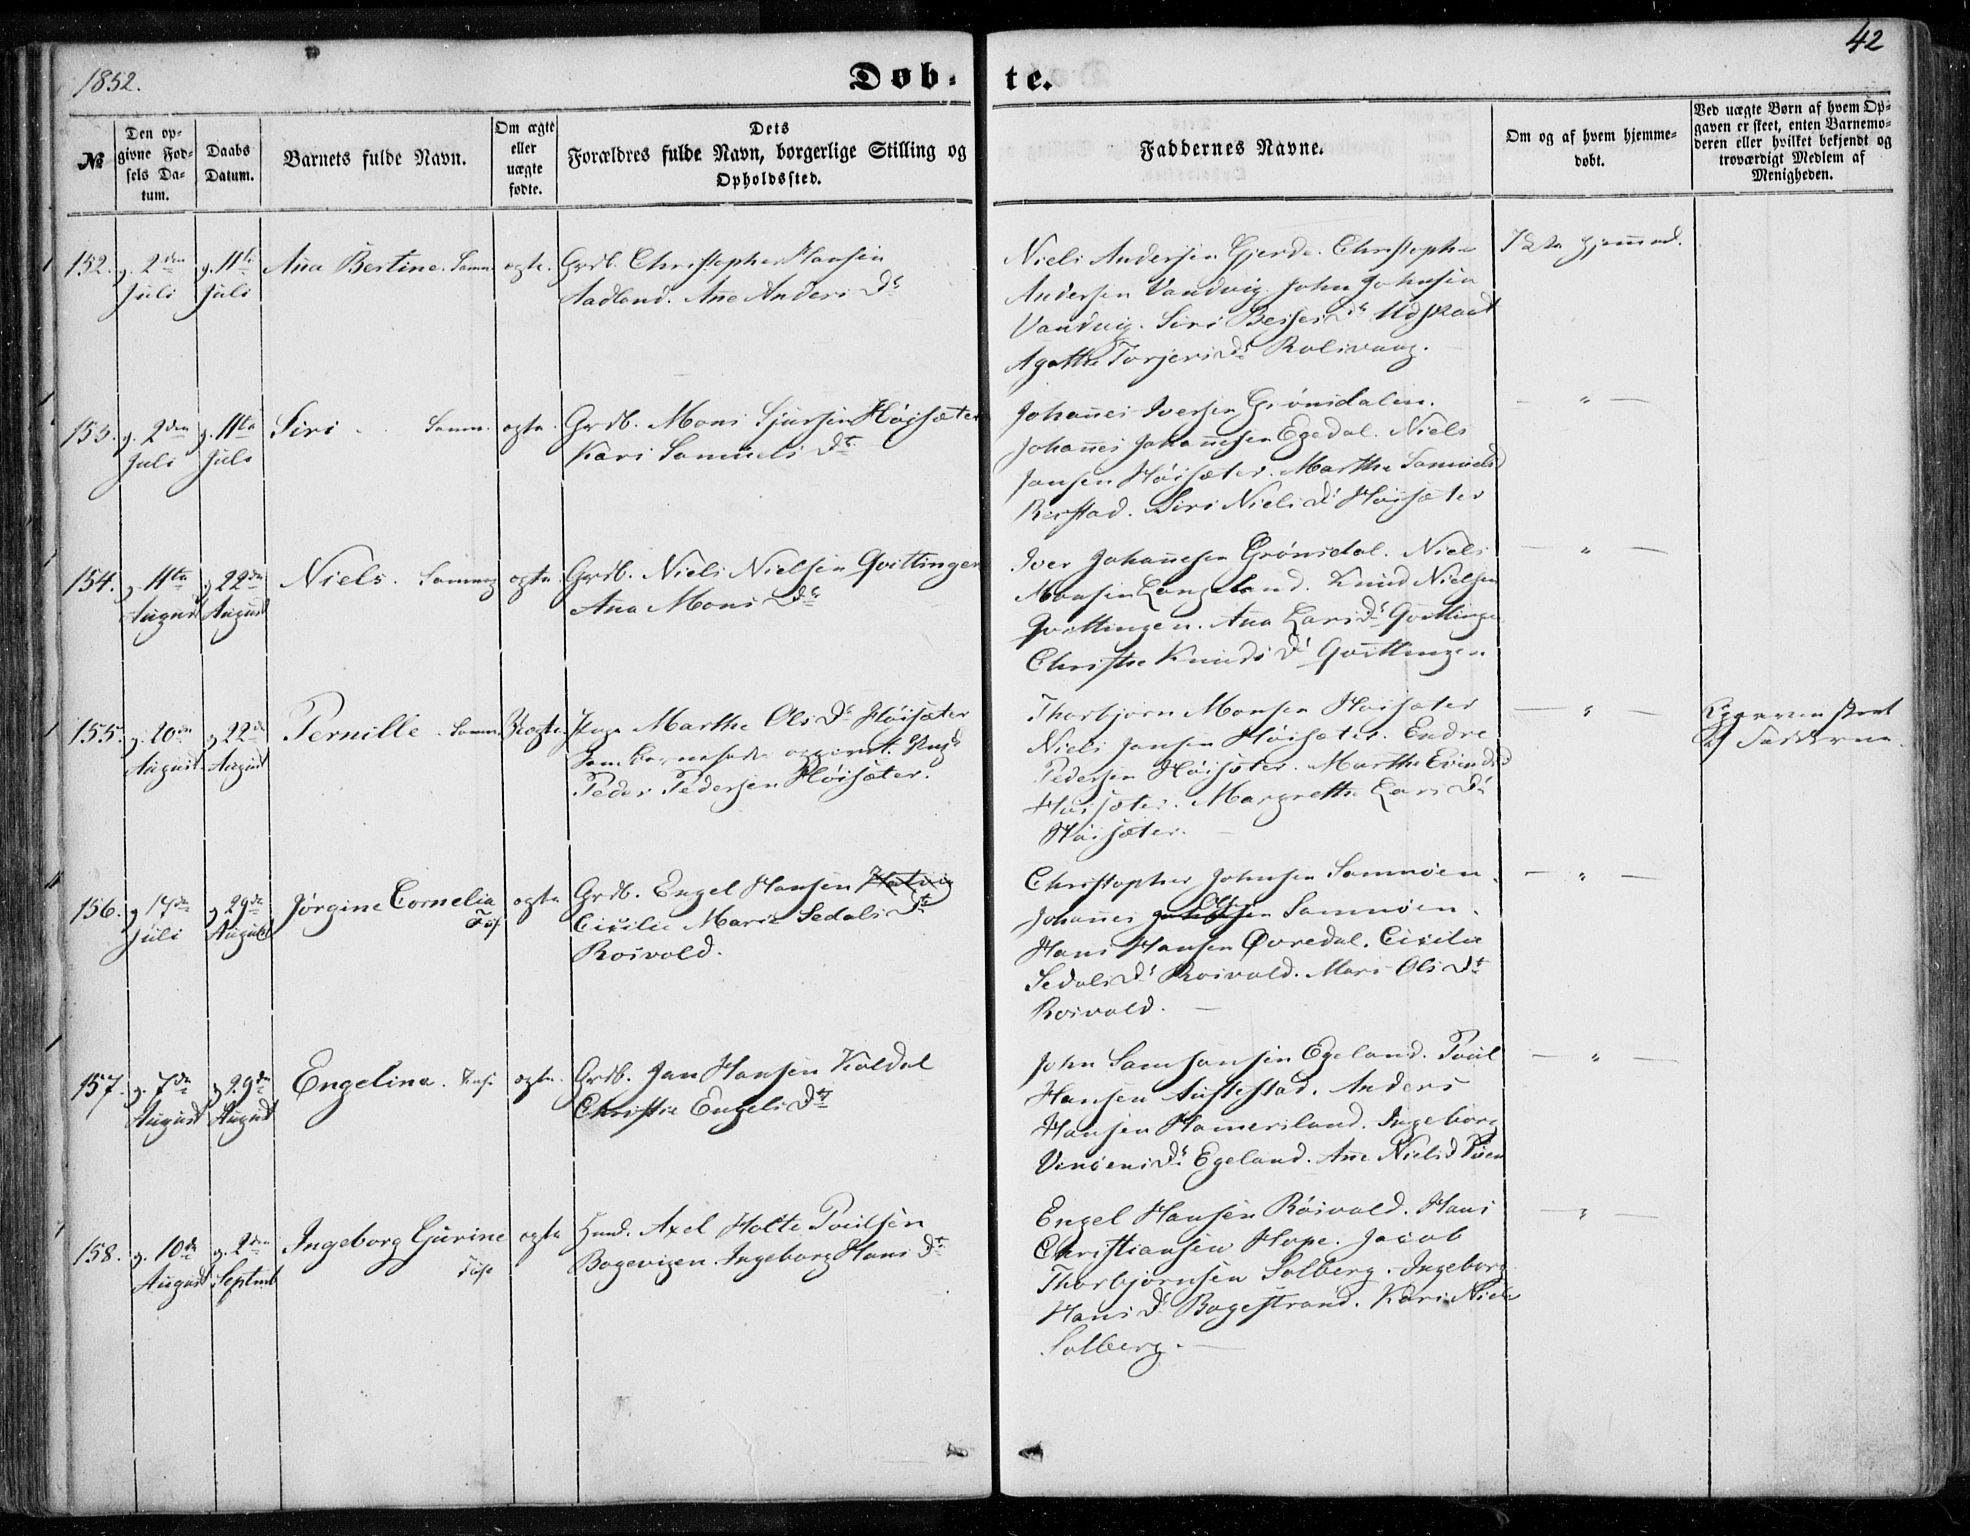 42
1852.
Døb-
te.
№
Den op-
givne Fød-
sels Da-
tum.
Daabs
Datum.
Barnets fulde Navn.
Om ægte
eller
uægte
fødte.
Dets
Forældres fulde Navn, borgerlige Stilling og
Opholdssted.
Faddernes Navne.
Om og af hvem hjemme-
døbt.
Ved uægte Børn af hvem Op-
gaven er skeet, enten Barnemo-
deren eller hvilket bekjendt og
troværdigt Medlem af
Menigheden.
152. 2den 11te Ana Bertine. Samn. ægte. Grdb. Christopher Hansen
Juli Juli Aadland. Ane Anders Dr
Niels Andersen Gjerde. Christoph
Andersen Vandvig. John Johnsen
Vandvig. Siri Dr Udskoat
Agathe Torjeris Dr Rolivaag.
Ikke hjemmed.
153. 2den 11te Siri Samn. ægte. Grdb. Mons Sjursen Høisæter
Juli Juli Kari Samuels Dr
Johanes Iversen Grönsdalen.
Johanes Johanesen Egedal. Niels
Jansen Høisæter. Marthe Samuelsd
Siri Niels Dr Høisæter
— " —
154. 11te 22de Niels. Samnag ægte. Grdb. Niels Nielsen Qvittingen
August August Ana Mons Dr
Iver Johanesen Grönsdal. Niels
Monsen Langeland. Knud Nielsen
Qvittingen. Ana Lars Dr Qvittinge
Christie Knuds Dr Qvittingen
— " —
155. 20de 22de Pernille. Samn. Uægte. Pige Marthe Ols Dr Høisæter
August August Som Barnefader opgivet. Ungk
Peder Pedersen Høisæter.
Thorbjørn Monsen Høisæter
Niels Jansen Høisæter. Endre
Pedersen Høisæter. Marthe
Høisæter. Margrethe Lars Dr
Høisæter.
— " —
skeet
af Fadderne.
156. 17de 29de Jørgine Cornelia ægte Grdb. Engel Hansen
Juli August Fus Cicilie Marie Sedals Dr
Roivold.
Christopher Johnsen Samnøen.
Johanes Olsen Samnøen.
Hans Hansen Øvredal. Cicilia
Sedals Dr Roivold. Mari Ols Dr
Roivold.
— " —
157. 7de 29de Engelina. Fuse ægte. Grdb. Jan Hansen Koldal
August August Christie Engels Dr
John Samsonsen Egeland. Poul
Hansen Austestad. Anders
Hansen Hamersland. Ingeborg
Dr Egeland. Ane Nielsd
— " —
158. 10de 2den Ingeborg Gurine ægte Axel Holte Poulsen
August Septmb Fuse Bogevigen. Ingeborg Hans Dr
Engel Hansen Röivold. Hans
Christiansen Hope. Jacob
Thorbjørnsen Solberg. Ingeborg
Hans Dr Bogestrand. Kari Niels
Solberg.
— " —